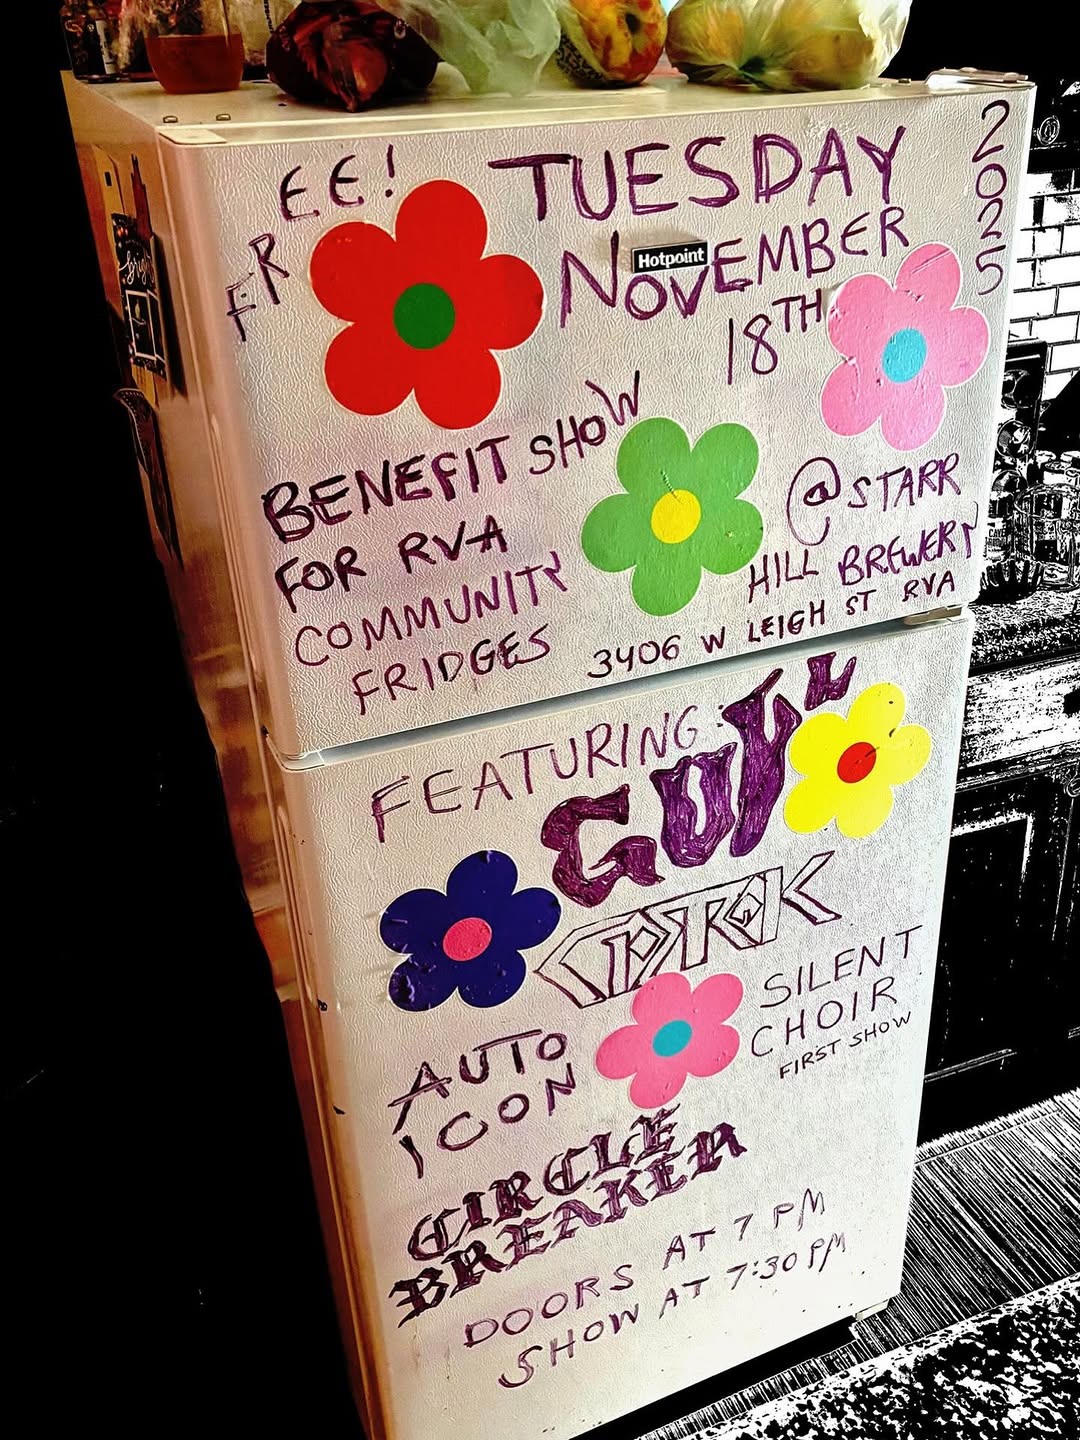 FREE!
TUESDAY
NOVEMBER
18TH
2025
Hotpoint
BENEFIT SHOW
FOR RVA
COMMUNITY
FRIDGES
@ STARR
HILL BREWERY
3406 W LEIGH ST RVA
FEATURING:
GULL
AUTO
ICON
SILENT
CHOIR
FIRST SHOW
CIRCLE
BREAKER
DOORS AT 7 PM
SHOW AT 7:30 PM